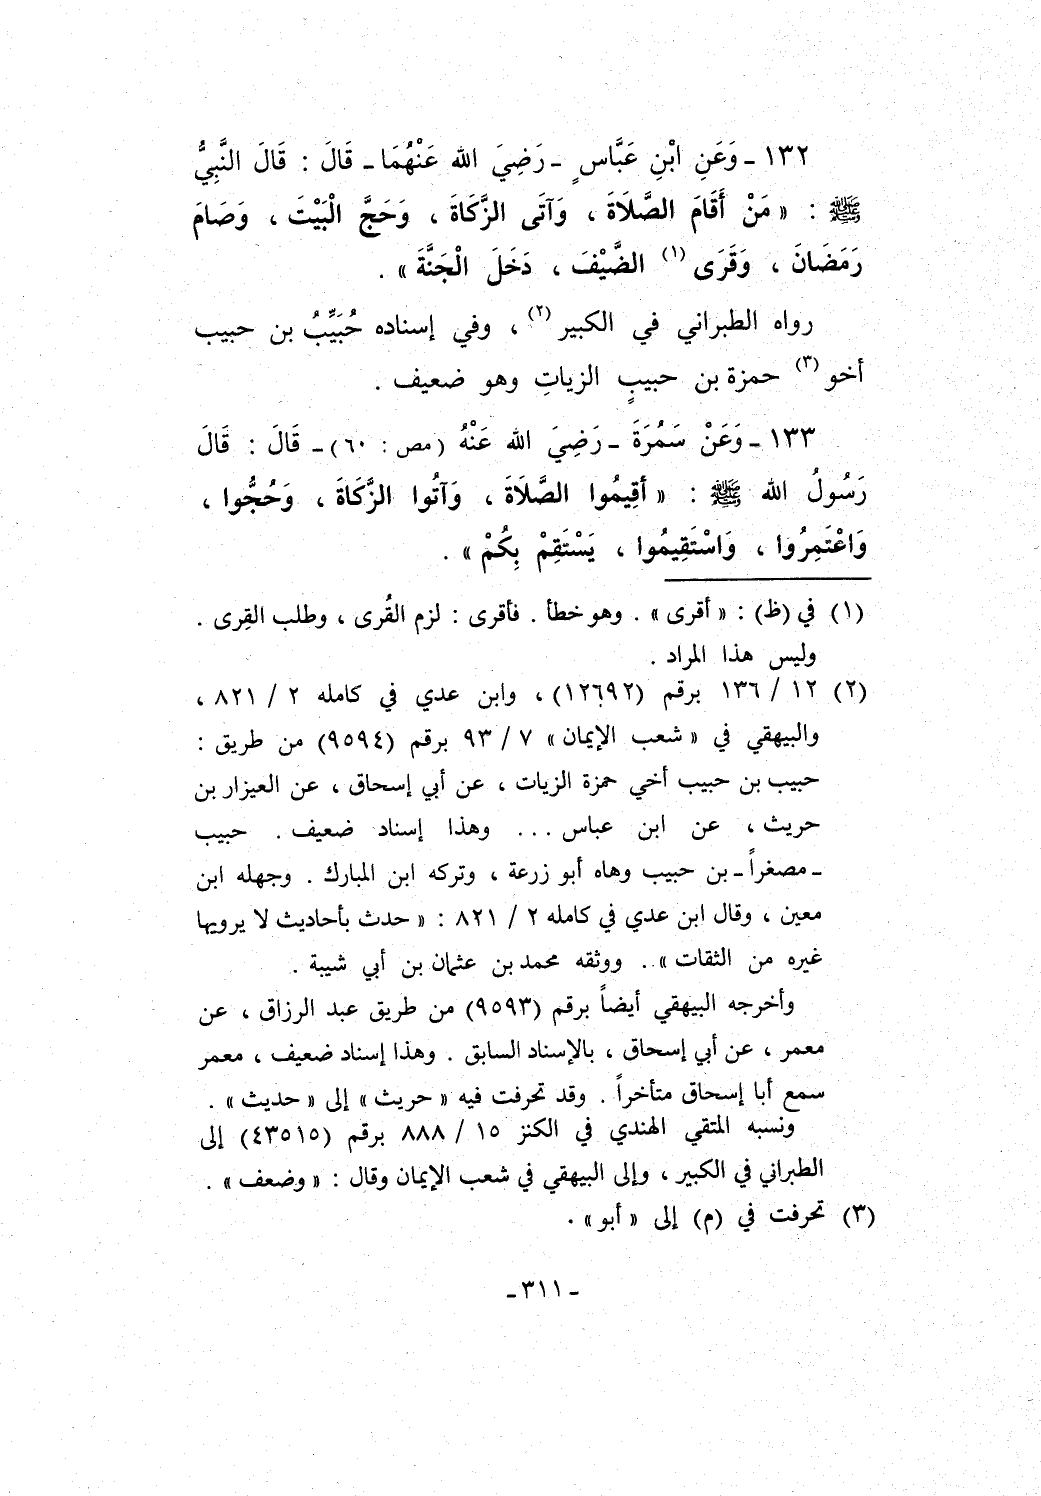 ١٣٢ ـ وَعَنِ ابْنِ عَبَّاسٍ ـ رَضِيَ الله عَنْهُمَا ـ قَالَ : قَالَ النَّبِيُّ
ﷺ : « مَنْ أَقَامَ الصَّلَاةَ ، وَآتَى الزَّكَاةَ ، وَحَجَّ الْبَيْتَ ، وَصَامَ
رَمَضَانَ ، وَقَرَى (١) الضَّيْفَ ، دَخَلَ الْجَنَّةَ » .
رواه الطبراني في الكبير (٢) ، وفي إسناده حُبَيِّبُ بن حبيب
أخو (٣) حمزة بن حبيبٍ الزياتِ وهو ضعيف .
١٣٣ ـ وَعَنْ سَمُرَةَ ـ رَضِيَ الله عَنْهُ (مص : ٦٠) ـ قَالَ : قَالَ
رَسُولُ الله ﷺ : « أَقِيمُوا الصَّلَاةَ ، وَآتُوا الزَّكَاةَ ، وَحُجُّوا ،
وَاعْتَمِرُوا ، وَاسْتَقِيمُوا ، يَسْتَقِمْ بِكُمْ » .
(١) في (ظ) : « أقرى » . وهو خطأ . فأقرى : لزم القُرى ، وطلب القِرى .
وليس هذا المراد .
(٢) ١٢ / ١٣٦ برقم (١٢٦٩٢) ، وابن عدي في كامله ٢ / ٨٢١ ،
والبيهقي في « شعب الإيمان » ٧ / ٩٣ برقم (٩٥٩٤) من طريق :
حبيب بن حبيب أخي حمزة الزيات ، عن أبي إسحاق ، عن العيزار بن
حريث ، عن ابن عباس ... وهذا إسناد ضعيف . حبيب
ـ مصغراً ـ بن حبيب وهاه أبو زرعة ، وتركه ابن المبارك . وجهله ابن
معين ، وقال ابن عدي في كامله ٢ / ٨٢١ : « حدث بأحاديث لا يرويها
غيره من الثقات » . ووثقه محمد بن عثمان بن أبي شيبة .
وأخرجه البيهقي أيضاً برقم (٩٥٩٣) من طريق عبد الرزاق ، عن
معمر ، عن أبي إسحاق ، بالإسناد السابق . وهذا إسناد ضعيف ، معمر
سمع أبا إسحاق متأخراً . وقد تحرفت فيه « حريث » إلى « حديث » .
ونسبه المتقي الهندي في الكنز ١٥ / ٨٨٨ برقم (٤٣٥١٥) إلى
الطبراني في الكبير ، وإلى البيهقي في شعب الإيمان وقال : « وضعف » .
(٣) تحرفت في (م) إلى « أبو » .
ـ ٣١١ ـ